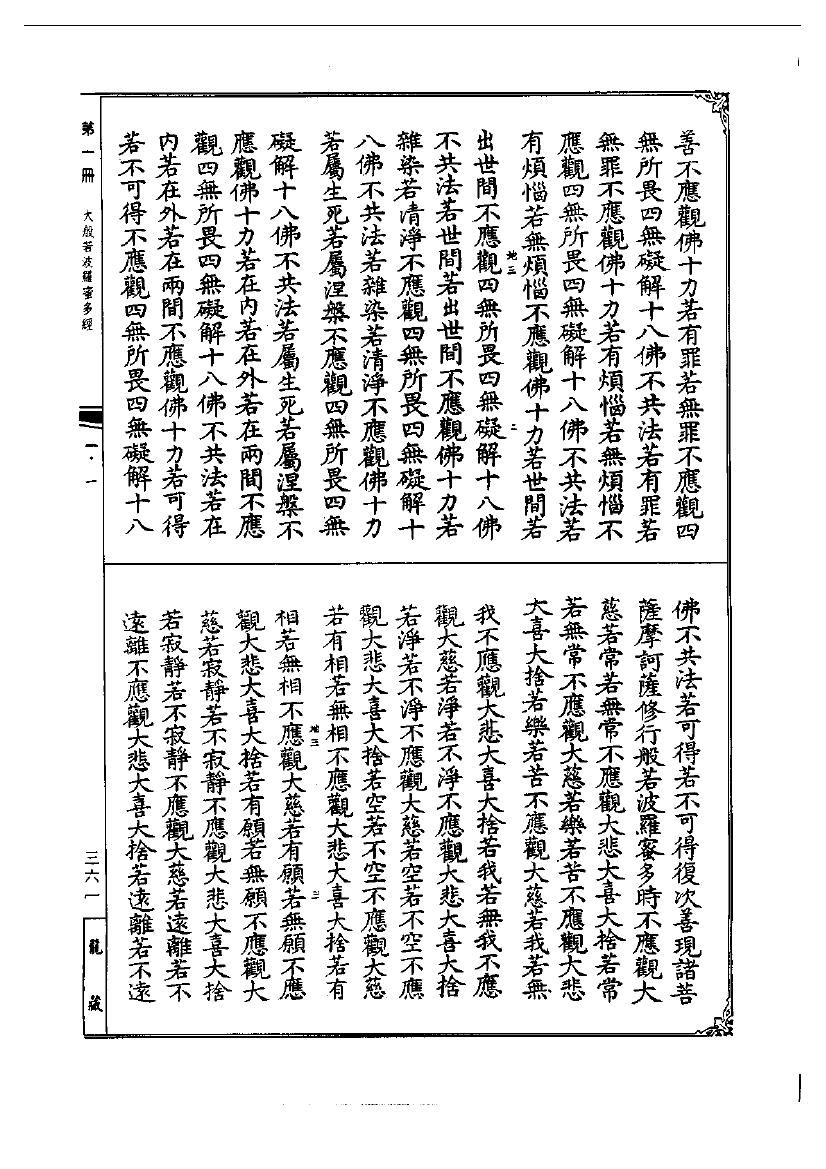 善不應觀佛十力若有罪若無罪不應觀四
無所畏四無礙解十八佛不共法若有罪若
無罪不應觀佛十力若有煩惱若無煩惱不
應觀四無所畏四無礙解十八佛不共法若
有煩惱若無煩惱不應觀佛十力若世間若
地三
二
出世間不應觀四無所畏四無礙解十八佛
不共法若世間若出世間不應觀佛十力若
雜染若清淨不應觀四無所畏四無礙解十
八佛不共法若雜染若清淨不應觀佛十力
若屬生死若屬涅槃不應觀四無所畏四無
礙解十八佛不共法若屬生死若屬涅槃不
應觀佛十力若在內若在外若在兩間不應
觀四無所畏四無礙解十八佛不共法若在
內若在外若在兩間不應觀佛十力若可得
若不可得不應觀四無所畏四無礙解十八
佛不共法若可得若不可得復次善現諸菩
薩摩訶薩修行般若波羅蜜多時不應觀大
慈若常若無常不應觀大悲大喜大捨若常
若無常不應觀大慈若樂若苦不應觀大悲
大喜大捨若樂若苦不應觀大慈若我若無
我不應觀大悲大喜大捨若我若無我不應
觀大慈若淨若不淨不應觀大悲大喜大捨
若淨若不淨不應觀大慈若空若不空不應
觀大悲大喜大捨若空若不空不應觀大慈
若有相若無相不應觀大悲大喜大捨若有
地三
三
相若無相不應觀大慈若有願若無願不應
觀大悲大喜大捨若有願若無願不應觀大
慈若寂靜若不寂靜不應觀大悲大喜大捨
若寂靜若不寂靜不應觀大慈若遠離若不
遠離不應觀大悲大喜大捨若遠離若不遠
第一冊 大般若波羅蜜多經
一·一
三六一
龍藏